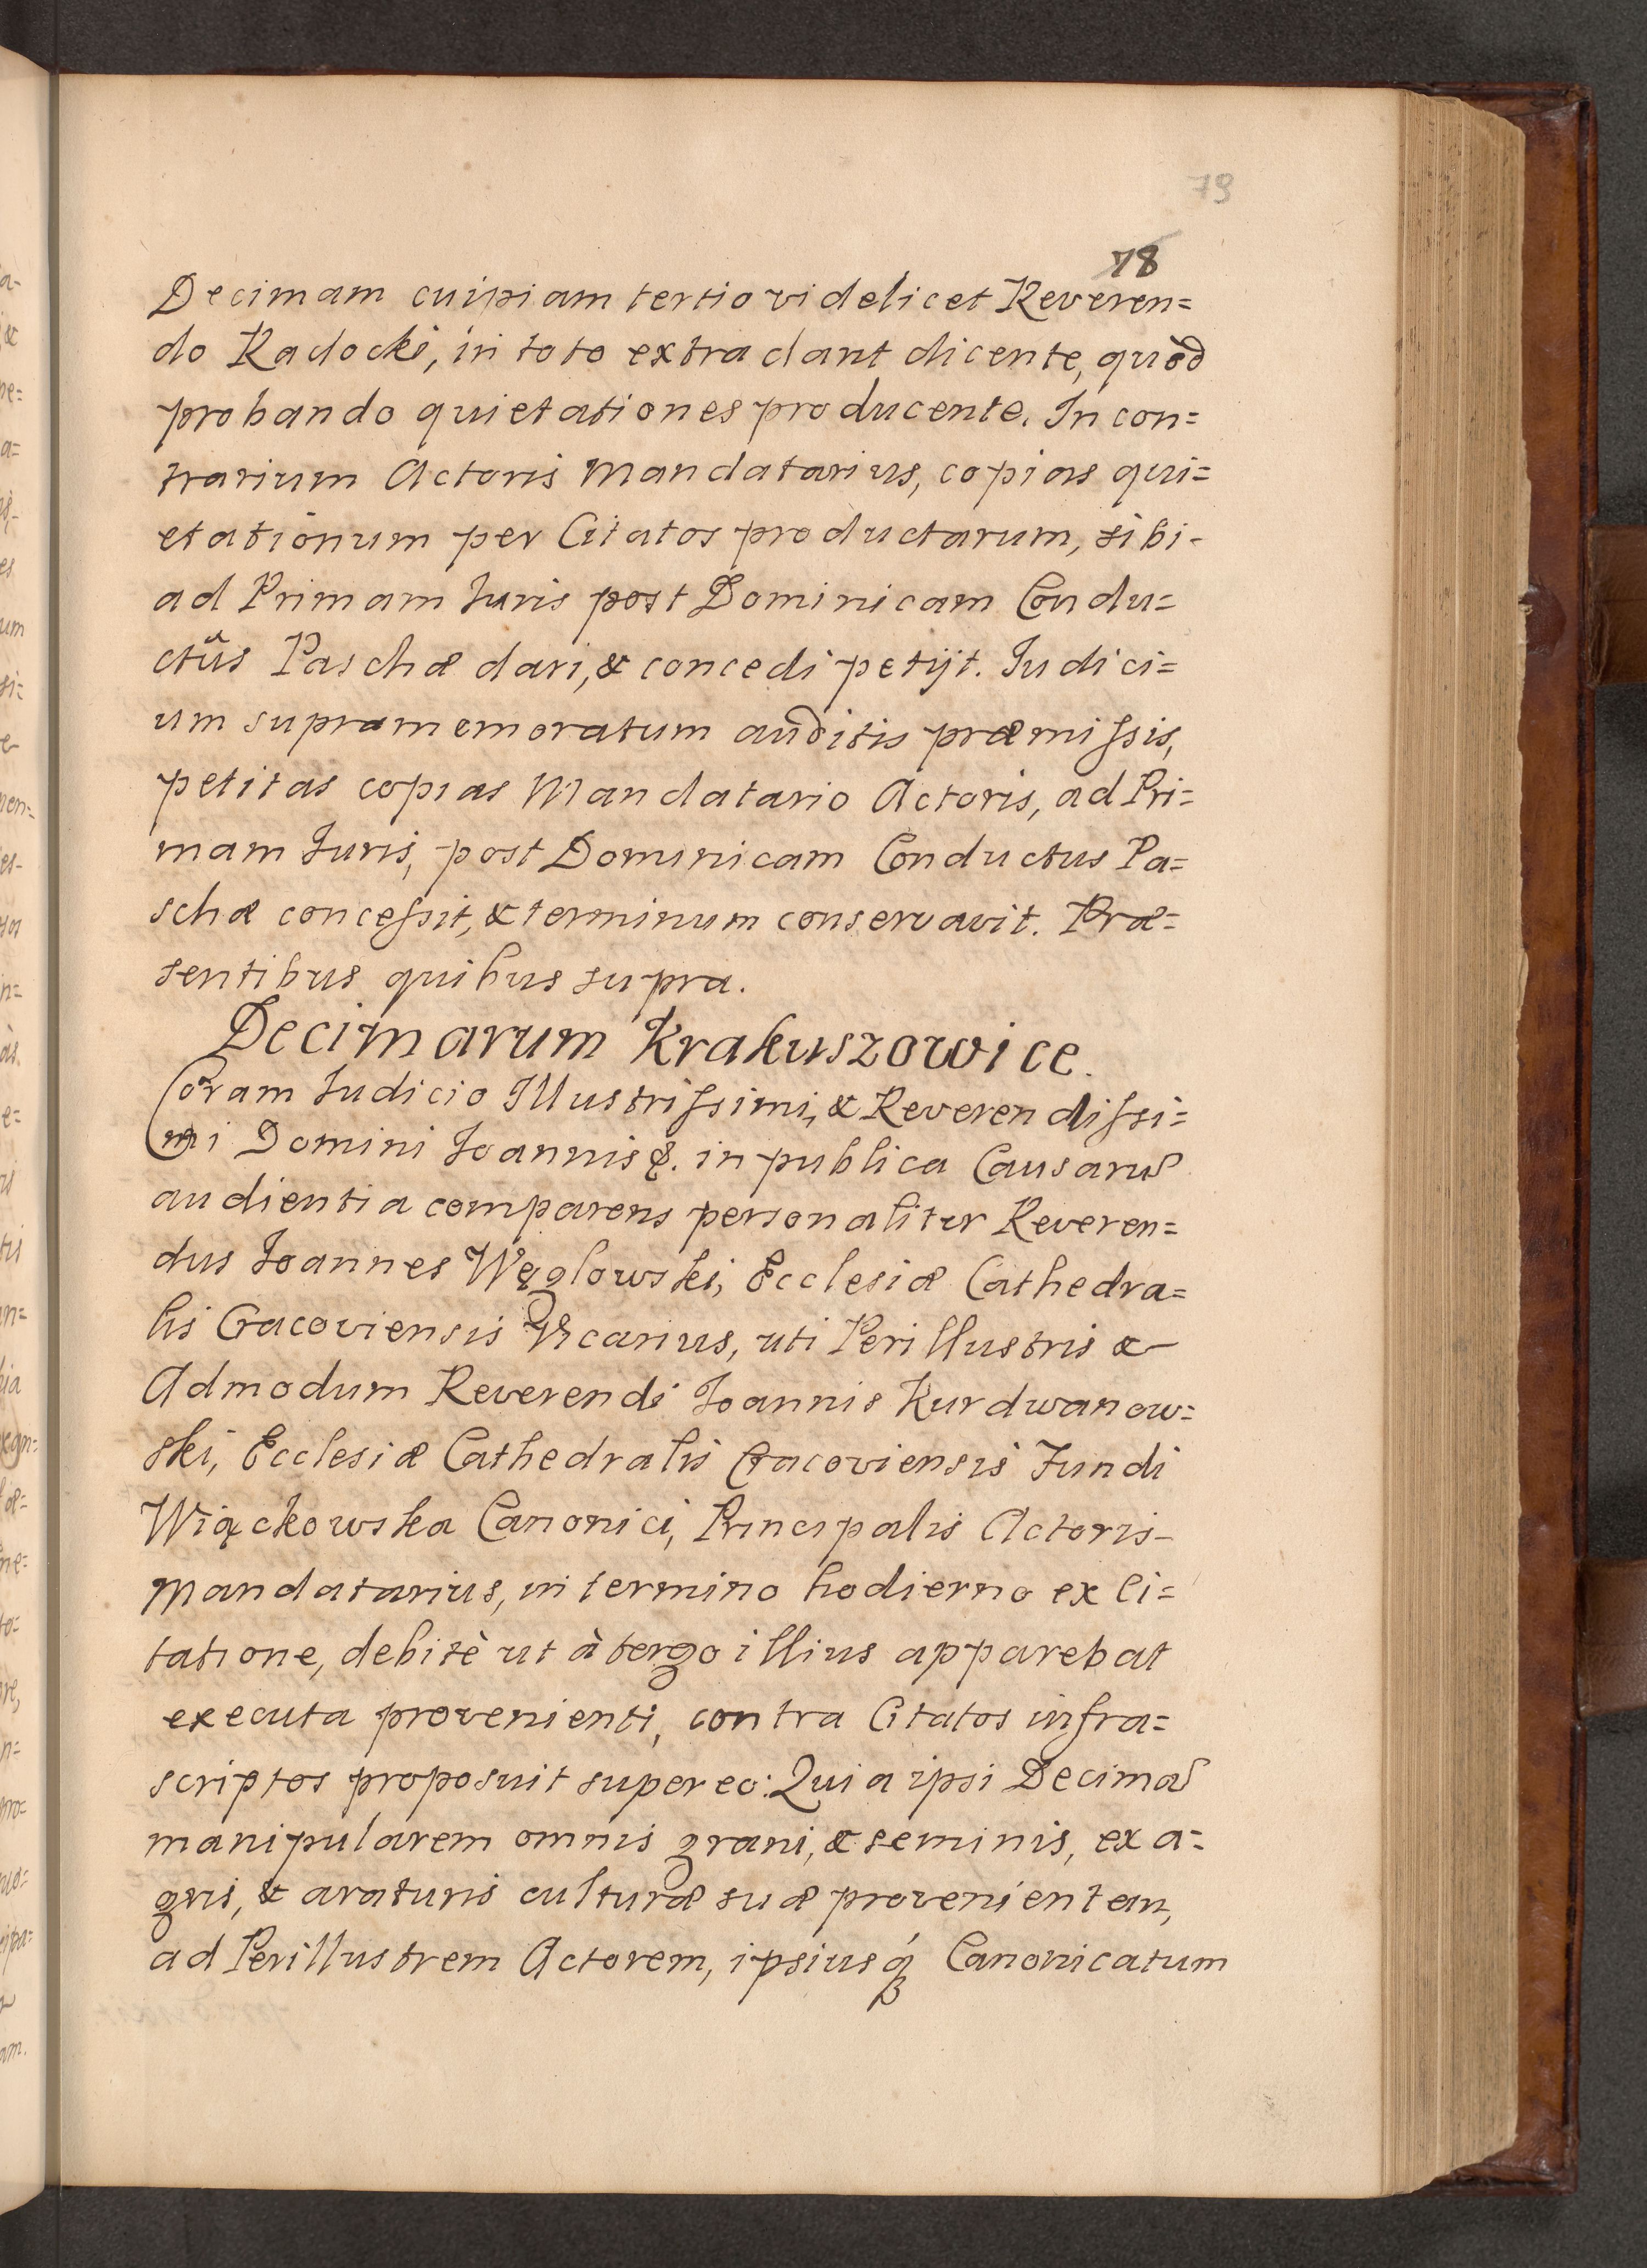 79
78
Decimam cuipiam tertio videlicet Reveren=
do Radocki, in toto extradant dicente, quòd
probando quietationes producente. In con=
trarium Actoris Mandatarius, copias qui=
etationum per Citatos productarum, sibi-
ad Primam Iuris post Dominicam Condu=
ctûs Paschæ dari, & concedi petijt. Iudici=
um supramemoratum auditis præmissis,
petitas copias Mandatario Actoris, ad Pri=
mam Iuris, post Dominicam Conductus Pa=
schæ concessit, & terminum conservavit. Præ=
sentibus quibus supra.
Decimarum Krakuszowice.
Coram Iudicio Illustrissimi, & Reverendissi=
mi Domini Ioannis &. in publica Causarũ
audientia comparens personaliter Reveren=
dus Ioannes Węglowski, Ecclesiæ Cathedra=
lis Cracoviensis Vicarius, uti Perillustris &
Admodum Reverendi Ioannis Kurdwanow=
ski, Ecclesiæ Cathedralis Cracoviensis Fundi
Wiąckowska Canonici, Principalis Actoris-
Mandatarius, in termino hodierno ex Ci=
tatione, debitè ut à tergo illius apparebat
executa provenienti, contra Citatos infra=
scriptos proposuit super eo: Quia ipsi Decimã
manipularem omnis grani, & seminis, ex a=
gris, & araturis culturæ suæ provenientem,
ad Perillustrem Actorem, ipsiusq́ Canonicatum